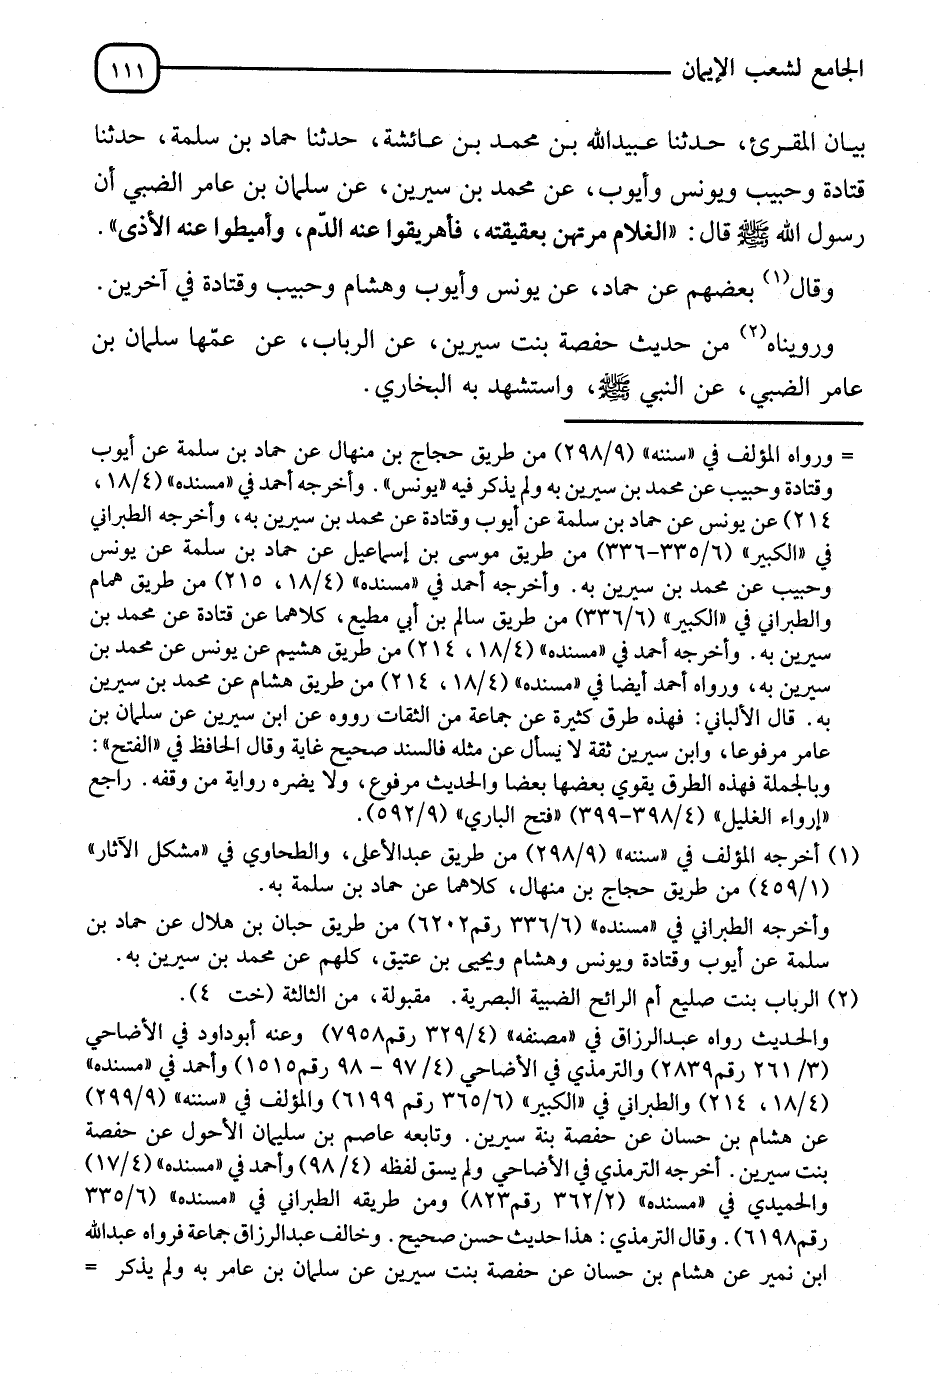 الجامع لشعب الإيمان ١١١
بيان المقرئ، حدثنا عبيدالله بن محمد بن عائشة، حدثنا حماد بن سلمة، حدثنا
قتادة وحبيب ويونس وأيوب، عن محمد بن سيرين، عن سلمان بن عامر الضبي أن
رسول الله ﷺ قال: «الغلام مرتهن بعقيقته، فأهريقوا عنه الدّم، وأميطوا عنه الأذى».
وقال(١) بعضهم عن حماد، عن يونس وأيوب وهشام وحبيب وقتادة في آخرين.
ورويناه(٢) من حديث حفصة بنت سيرين، عن الرباب، عن عمّها سلمان بن
عامر الضبي، عن النبي ﷺ، واستشهد به البخاري.
= ورواه المؤلف في «سننه» (٢٩٨/٩) من طريق حجاج بن منهال عن حماد بن سلمة عن أيوب
وقتادة وحبيب عن محمد بن سيرين به ولم يذكر فيه «يونس». وأخرجه أحمد في «مسنده» (١٨/٤،
٢١٤) عن يونس عن حماد بن سلمة عن أيوب وقتادة عن محمد بن سيرين به، وأخرجه الطبراني
في «الكبير» (٣٣٥/٦-٣٣٦) من طريق موسى بن إسماعيل عن حماد بن سلمة عن يونس
وحبيب عن محمد بن سيرين به. وأخرجه أحمد في «مسنده» (١٨/٤، ٢١٥) من طريق همام
والطبراني في «الكبير» (٣٣٦/٦) من طريق سالم بن أبي مطيع، كلاهما عن قتادة عن محمد بن
سيرين به. وأخرجه أحمد في «مسنده» (١٨/٤، ٢١٤) من طريق هشيم عن يونس عن محمد بن
سيرين به، ورواه أحمد أيضا في «مسنده» (١٨/٤، ٢١٤) من طريق هشام عن محمد بن سيرين
به. قال الألباني: فهذه طرق كثيرة عن جماعة من الثقات رووه عن ابن سيرين عن سلمان بن
عامر مرفوعا، وابن سيرين ثقة لا يسأل عن مثله فالسند صحيح غاية وقال الحافظ في «الفتح»:
وبالجملة فهذه الطرق يقوي بعضها بعضا والحديث مرفوع، ولا يضره رواية من وقفه. راجع
«إرواء الغليل» (٣٩٨/٤-٣٩٩) «فتح الباري» (٥٩٢/٩).
(١) أخرجه المؤلف في «سننه» (٢٩٨/٩) من طريق عبدالأعلى، والطحاوي في «مشكل الآثار»
(٤٥٩/١) من طريق حجاج بن منهال، كلاهما عن حماد بن سلمة به.
وأخرجه الطبراني في «مسنده» (٣٣٦/٦ رقم٦٢٠٢) من طريق حبان بن هلال عن حماد بن
سلمة عن أيوب وقتادة ويونس وهشام ويحيى بن عتيق، كلهم عن محمد بن سيرين به.
(٢) الرباب بنت صليع أم الرائح الضبية البصرية. مقبولة، من الثالثة (خت ٤).
والحديث رواه عبدالرزاق في «مصنفه» (٣٢٩/٤ رقم٧٩٥٨) وعنه أبوداود في الأضاحي
(٢٦١/٣ رقم٢٨٣٩) والترمذي في الأضاحي (٩٧/٤ - ٩٨ رقم١٥١٥) وأحمد في «مسنده»
(١٨/٤، ٢١٤) والطبراني في «الكبير» (٣٦٥/٦ رقم ٦١٩٩) والمؤلف في «سننه» (٢٩٩/٩)
عن هشام بن حسان عن حفصة بنة سيرين. وتابعه عاصم بن سليمان الأحول عن حفصة
بنت سيرين. أخرجه الترمذي في الأضاحي ولم يسق لفظه (٩٨/٤) وأحمد في «مسنده» (١٧/٤)
والحميدي في «مسنده» (٣٦٢/٢ رقم٨٢٣) ومن طريقه الطبراني في «مسنده» (٣٣٥/٦
رقم٦١٩٨). وقال الترمذي: هذا حديث حسن صحيح. وخالف عبدالرزاق جماعة فرواه عبدالله
ابن نمير عن هشام بن حسان عن حفصة بنت سيرين عن سلمان بن عامر به ولم يذكر =